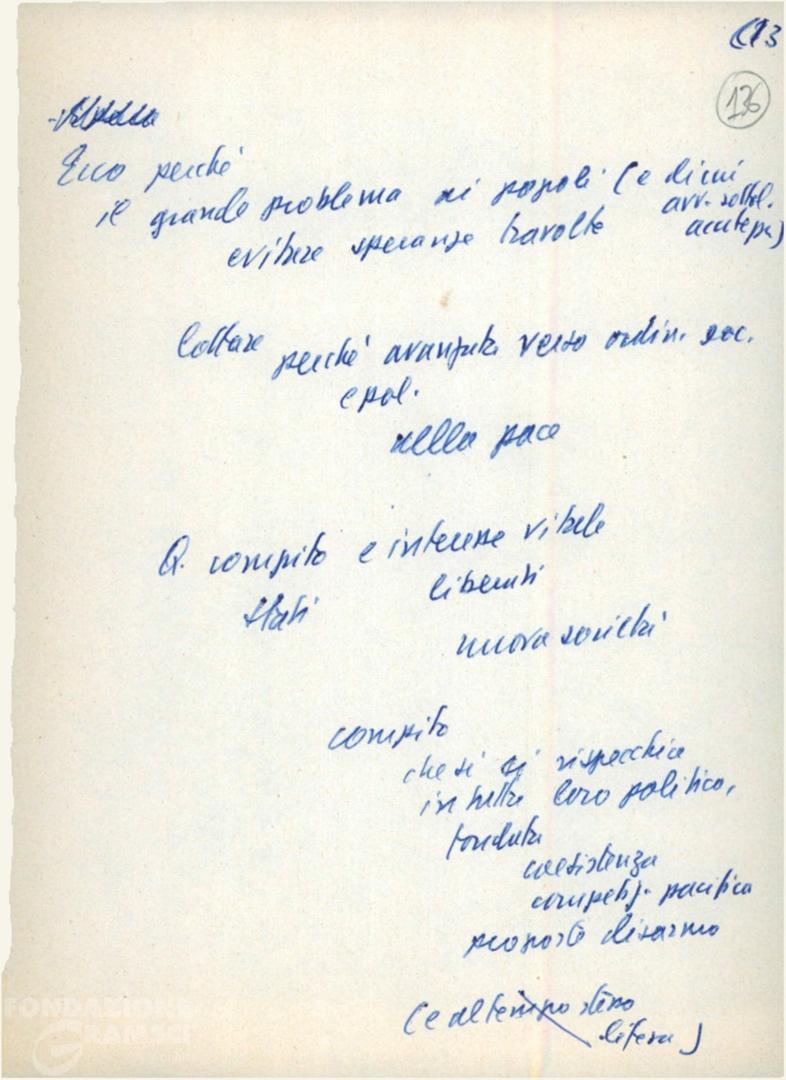 13
136
Ecco perché
il grande problema ai popoli (e di cui
avv. sottol.
evitare speranze travolte acutezza)
Lottare perché avanzata verso ordin. soc.
e pol.
nella pace
Q. compito e interesse vitale
Stati liberati
nuova società
compito
che si rispecchia
in tutta loro politica,
fondata
coesistenza
competiz. pacifica
proposte disarmo
(e al tempo stesso
difesa)
FONDAZIONE
GRAMSCI